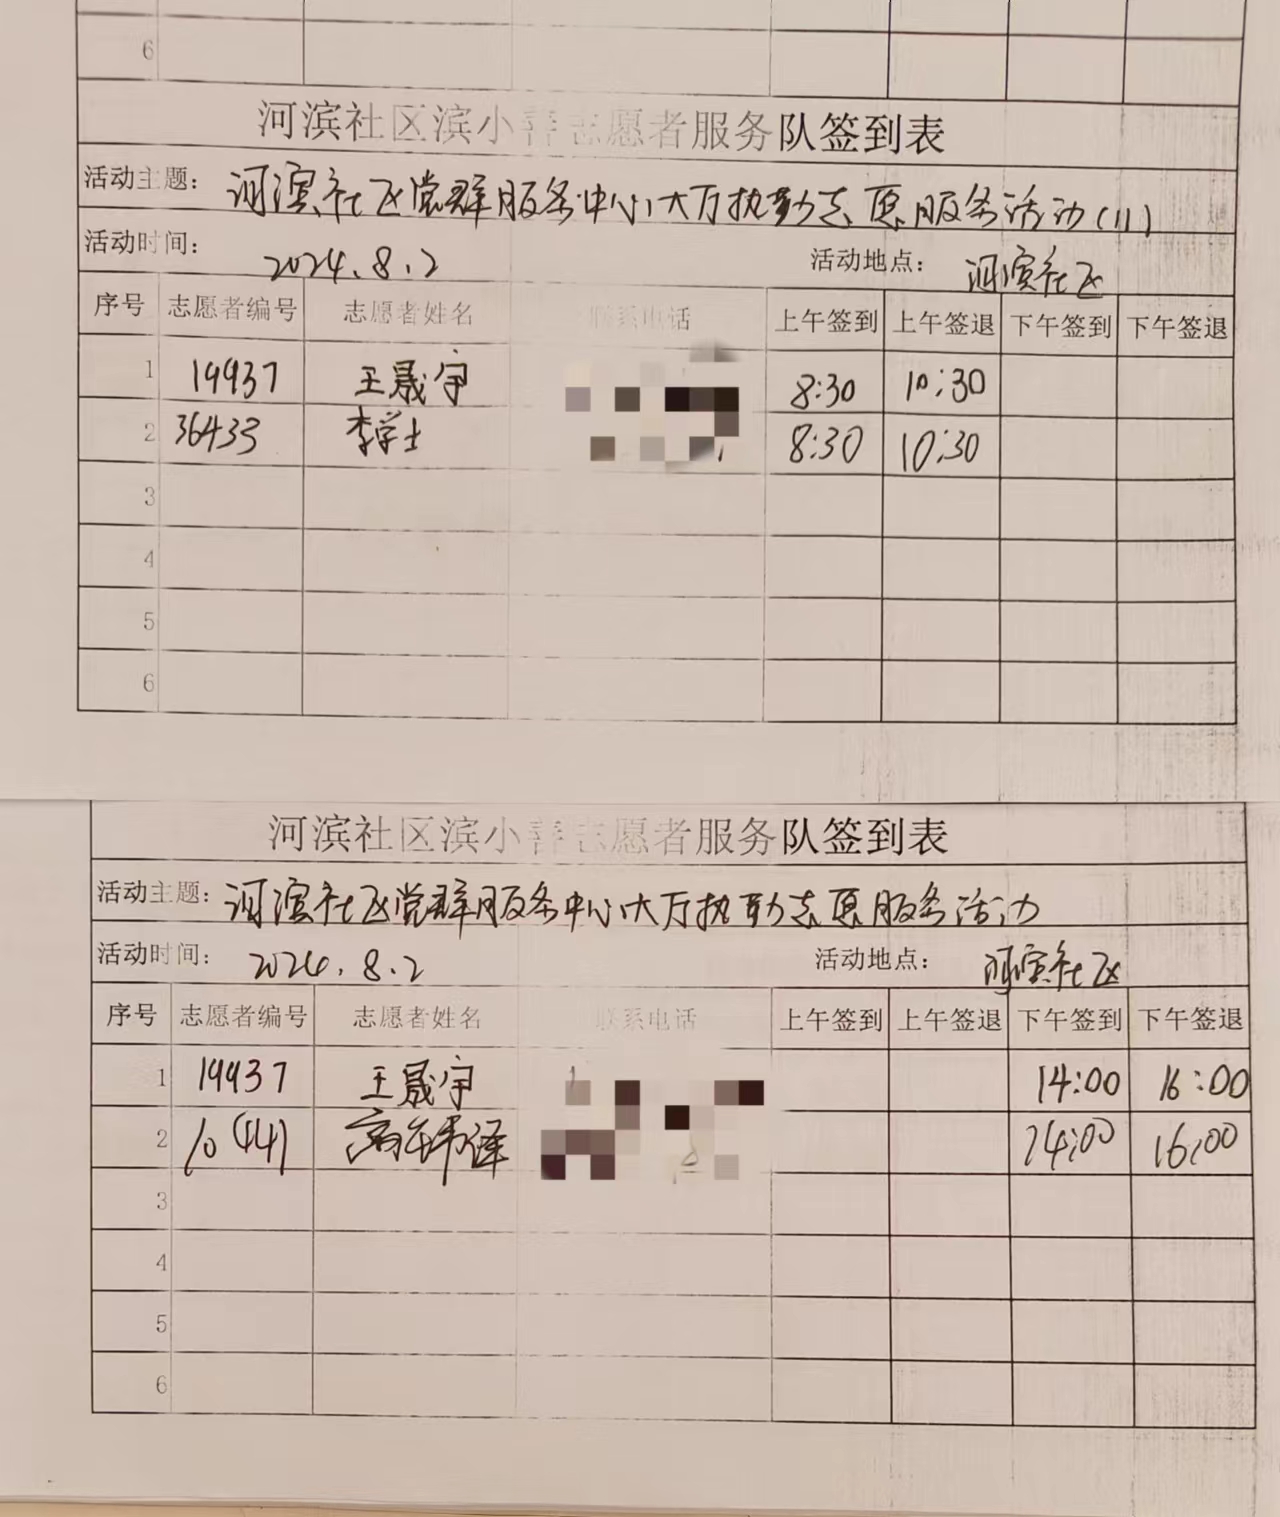 6
河滨社区滨小善志愿者服务队签到表
活动主题：河滨社区党群服务中心大厅执勤志愿服务活动(11)
活动时间：2024.8.2 活动地点：河滨社区
序号 志愿者编号 志愿者姓名 联系电话 上午签到 上午签退 下午签到 下午签退
1 19937 王晟宇 8:30 10:30
2 36433 李学士 8:30 10:30
3
4
5
6
河滨社区滨小善志愿者服务队签到表
活动主题：河滨社区党群服务中心大厅执勤志愿服务活动
活动时间：2024.8.2 活动地点：河滨社区
序号 志愿者编号 志愿者姓名 联系电话 上午签到 上午签退 下午签到 下午签退
1 19937 王晟宇 14:00 16:00
2 14:00 16:00
3
4
5
6